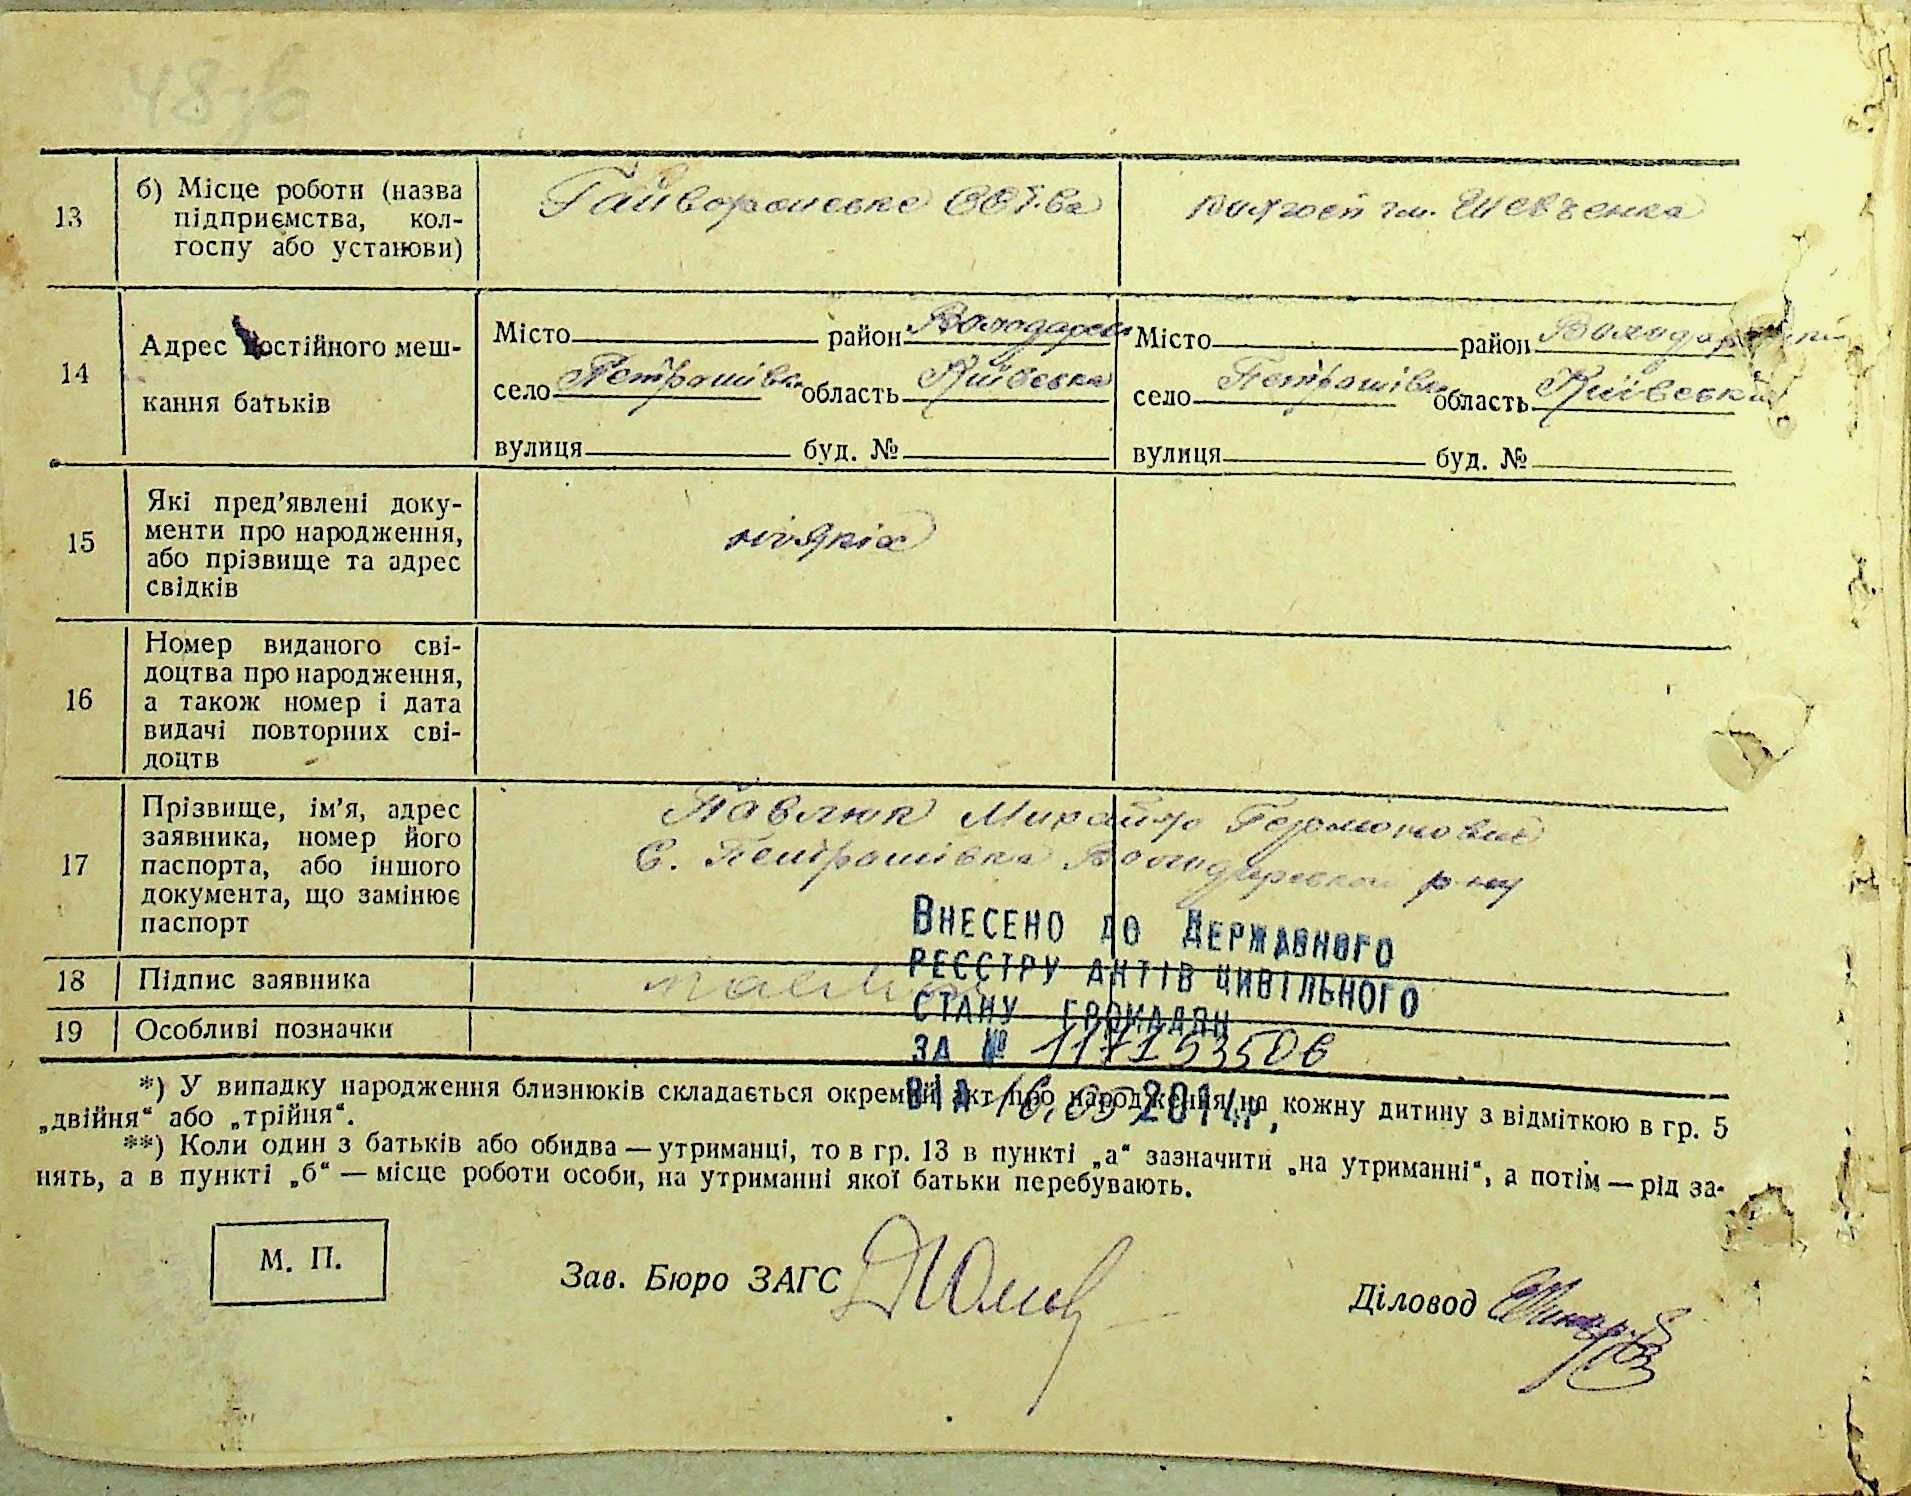 48зв
13
б) Місце роботи (назва
підприємства, кол-
госпу або установи)
Гайворонське
колгосп ім. Шевченка
14
Адрес постійного меш-
кання батьків
Місто район Володарськ
село Петрашівка область Київська
вулиця буд. №
Місто район Володарський
село Петрашівка область Київська
вулиця буд. №
15
Які пред’явлені доку-
менти про народження,
або прізвище та адрес
свідків
ніяких
16
Номер виданого сві-
доцтва про народження,
а також номер і дата
видачі повторних сві-
доцтв
17
Прізвище, ім’я, адрес
заявника, номер його
паспорта, або іншого
документа, що замінює
паспорт
Павлюк Михайло
С. Петрашівка Володарський р-ну
18
Підпис заявника
19
Особливі позначки
ВНЕСЕНО ДО ДЕРЖАВНОГО
РЕЄСТРУ АКТІВ ЦИВІЛЬНОГО
СТАНУ ГРОМАДЯН
ЗА №
ВІД 16.05 2014р.
*) У випадку народження близнюків складається окремий акт про народження на кожну дитину з відміткою в гр. 5
„двійня“ або „трійня“.
**) Коли один з батьків або обидва — утриманці, то в гр. 13 в пункті „а“ зазначити „на утриманні“, а потім — рід за-
нять, а в пункті „б“ — місце роботи особи, на утриманні якої батьки перебувають.
М. П.
Зав. Бюро ЗАГС
Діловод